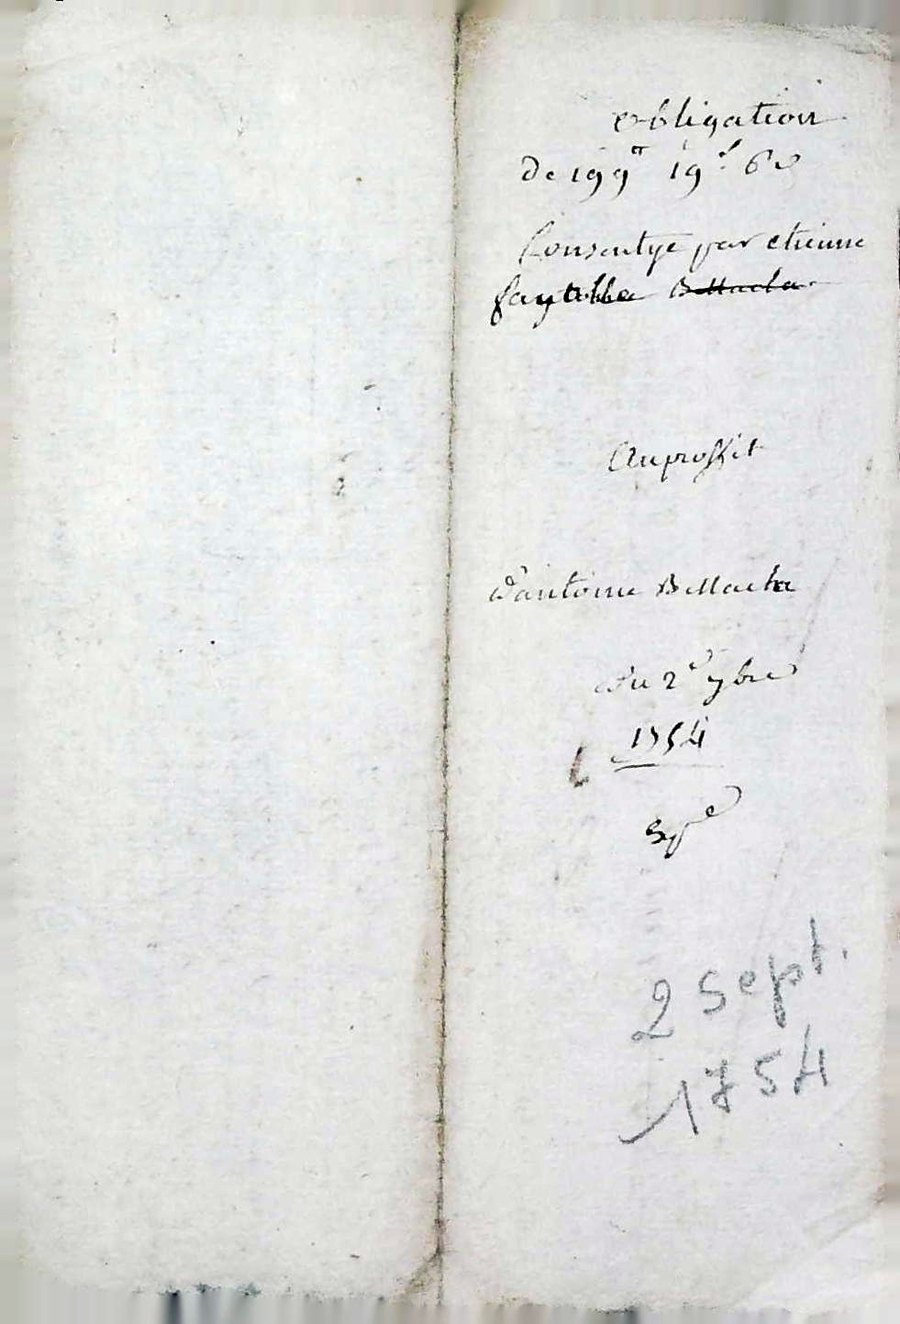 obligation
De 199tt 19s 6d
Consentye par etienne
Auproffit
D'antoine Bellache
Du 2e 7bre
1754
2 Sept.
1754